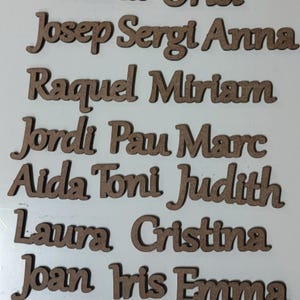 Josep Sergi Anna
Raquel Miriam
Jordi Pau Marc
Aida Toni Judith
Laura Cristina
Joan Iris Emma